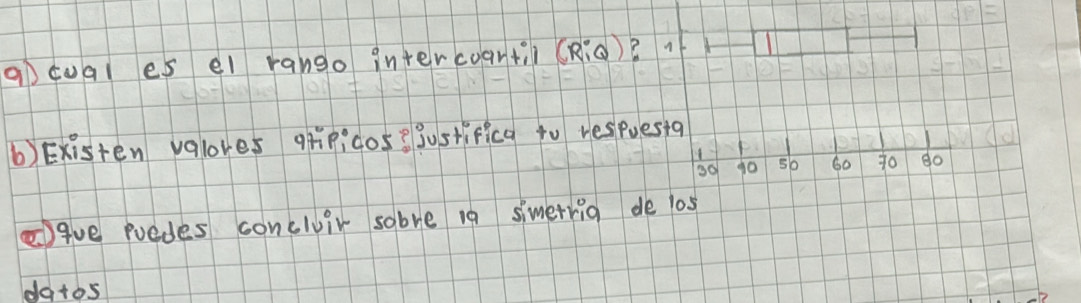 a) cual es el rango intercuartil (RiQ)?
b) Existen valores atípicos? justifica tu respuesta
30 40 50 60 70 80
c) que puedes concluir sobre la simetria de los
datos